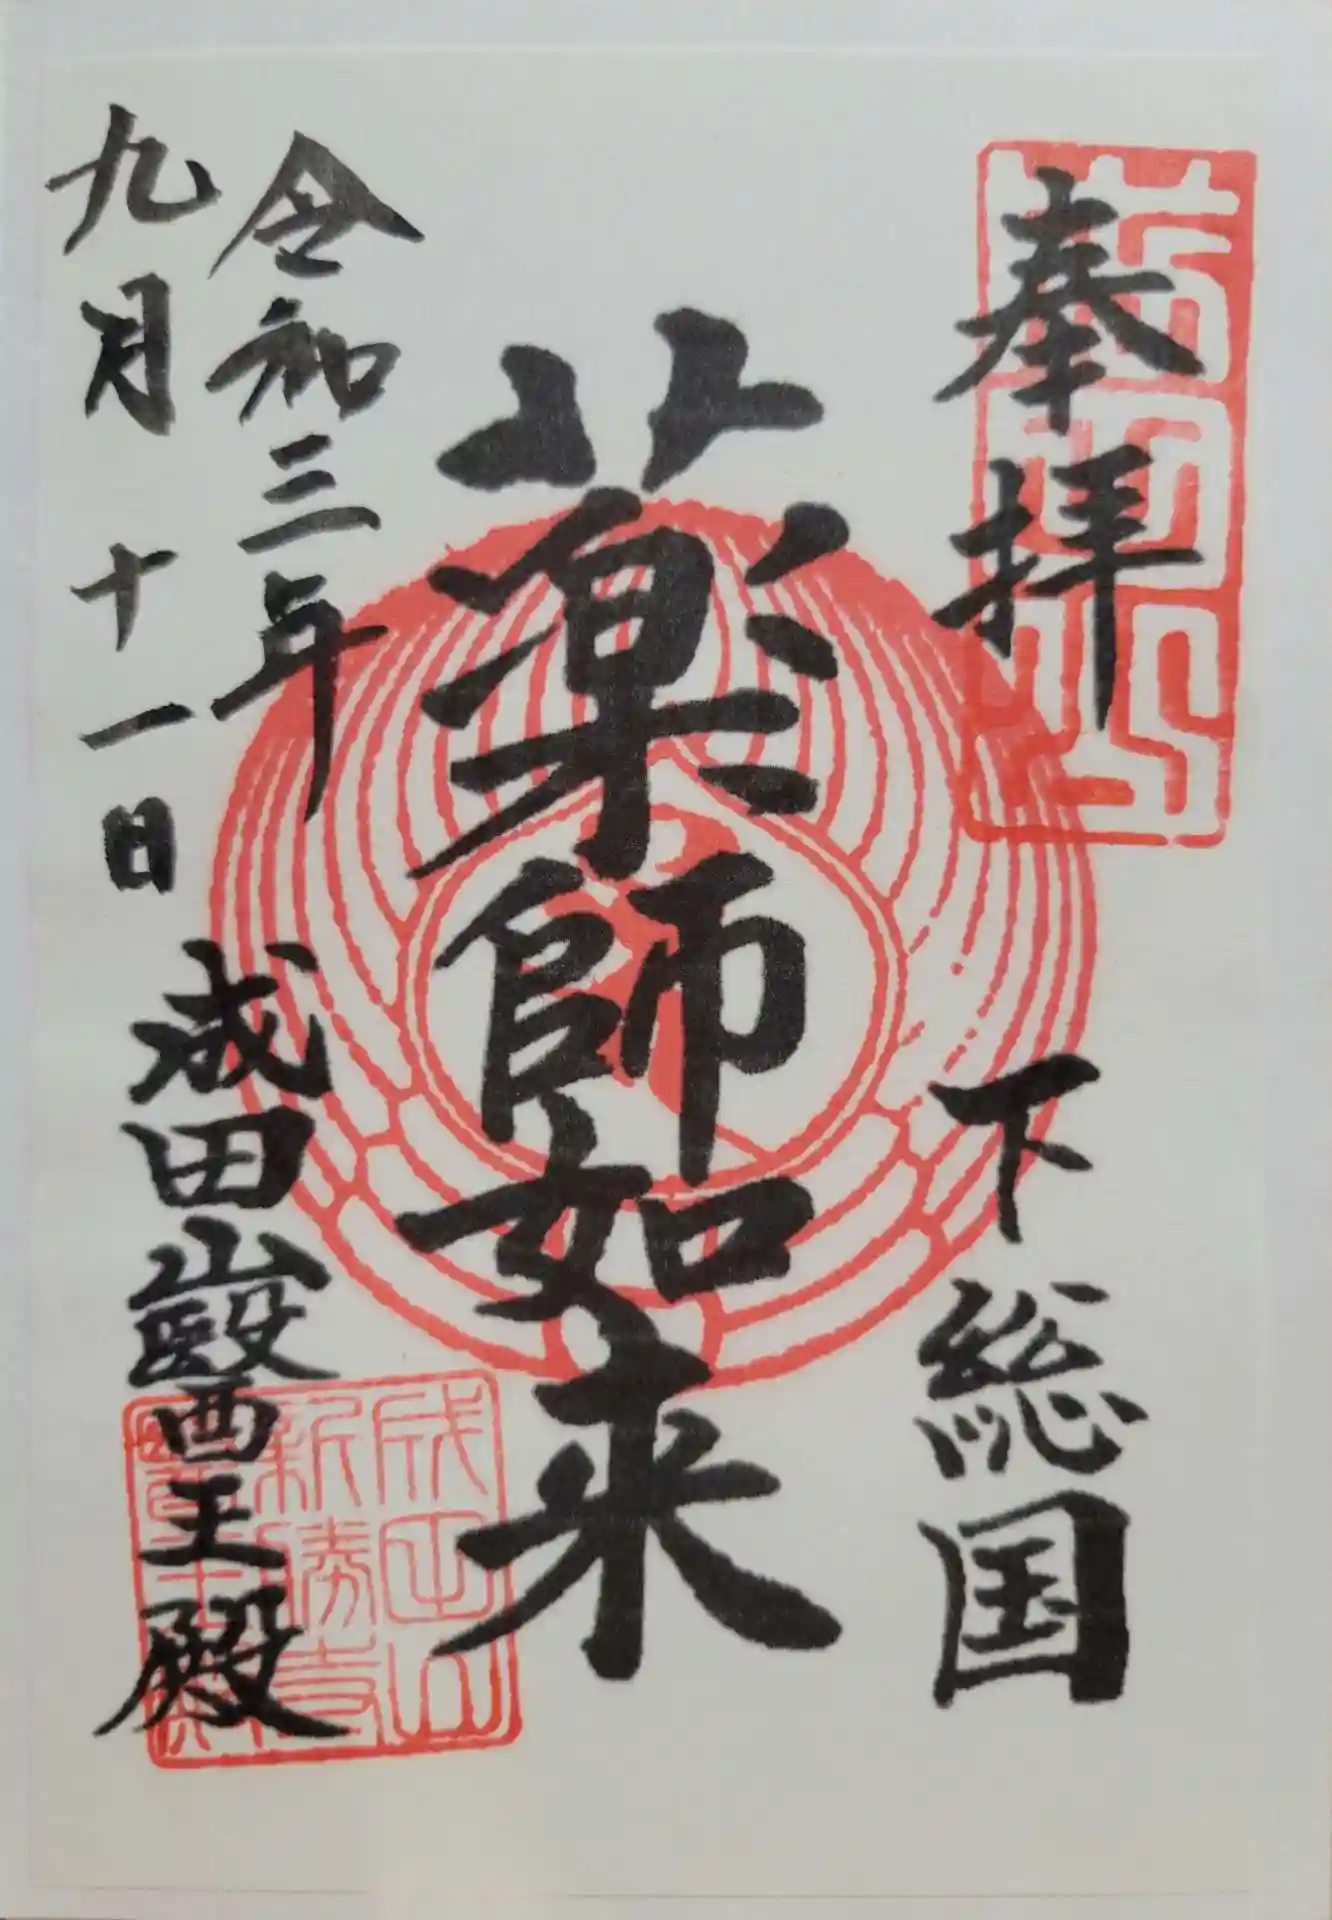 奉拝
下総国
薬師如来
令和三年
九月十一日
成田山醫王殿
成田山
新勝寺